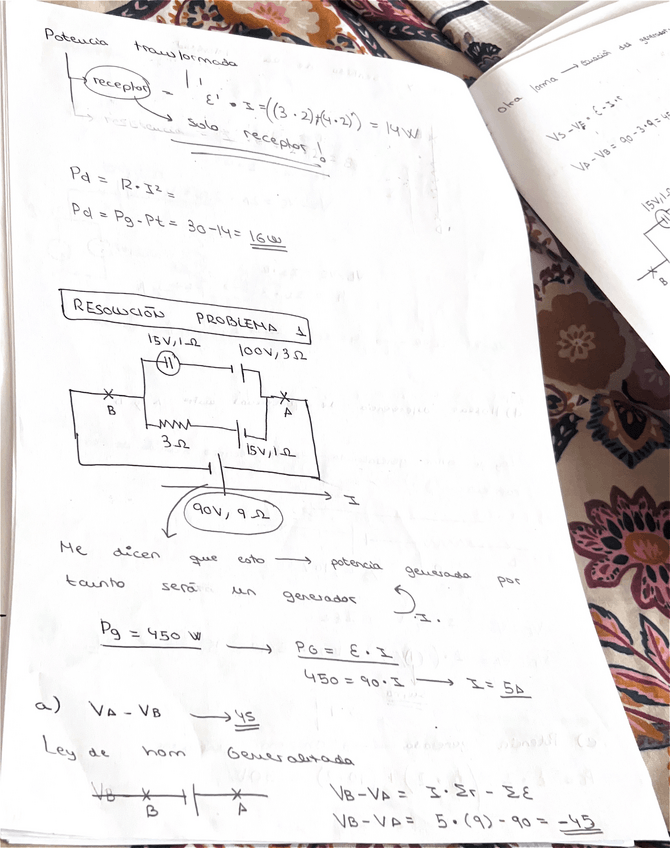 Potencia transformada
receptor = ε' • I = ((3 • 2) + (4 • 2)) = 14W
solo receptor!
Pd = R • I² =
Pd = Pg - Pt = 30 - 14 = 16w
RESOLUCIÓN PROBLEMA 1
15V, 1Ω 100V, 3Ω
B A
3Ω 15V, 1Ω
I
90V, 9Ω
Me dicen que esto → potencia generada por
tanto será un generador
I.
Pg = 450 W → PG = ε • I
450 = 90 • I → I = 5A
a) VA - VB → 45
Ley de hom Generalizada
VB
B A
VB - VA = I • Σr - Σε
VB - VA = 5 • (9) - 90 = -45
Otra forma →
15V, 1Ω
B